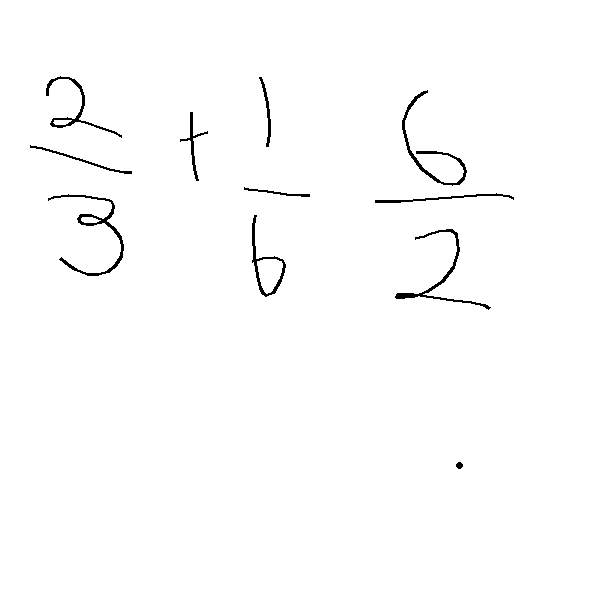 2/3 + 1/6 6/2